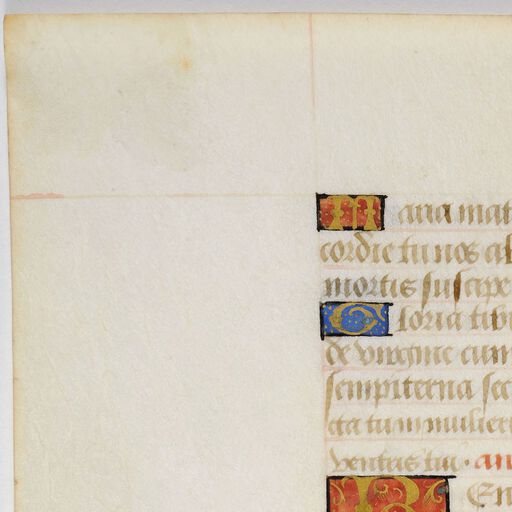 Maria mat
cordie tu nos ab
mortis suscipe
Gloria tibi
de virgine cum
sempiterna sec
cta tu in mulieri
ventris tui. an
Ben